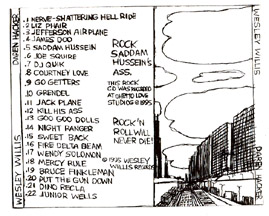 DAREN HACKER
WESLEY WILLIS
1 NERVE-SHATTERING HELL RIDE
2 LIZ PHAIR
3 JEFFERSON AIRPLANE
4 JAMES DOD
5 SADDAM HUSSEIN
6 JOE SQUIRE
7 DJ QUIK
8 COURTNEY LOVE
9 GO GETTERS
10 GRENDEL
11 JACK PLANE
12 KILL HIS ASS
13 GOO GOO DOLLS
14 NIGHT RANGER
15 SWEET BACK
16 FIRE DELTA BEAM
17 WENDY SOLOMON
18 MERCY RULE
19 BRUCE FINKLEMAN
20 PUT THE GUN DOWN
21 DINO RECLA
22 JUNIOR WELLS
ROCK
SADDAM
HUSSEIN'S
ASS.
THIS ROCK
CD WAS INCLUDED
AT GHETTO LOVE
STUDIOS ©1995
ROCK'N
ROLL WILL
NEVER DIE!
©1995 WESLEY
WILLIS RECORDS
WESLEY WILLIS
DAREN HACKER